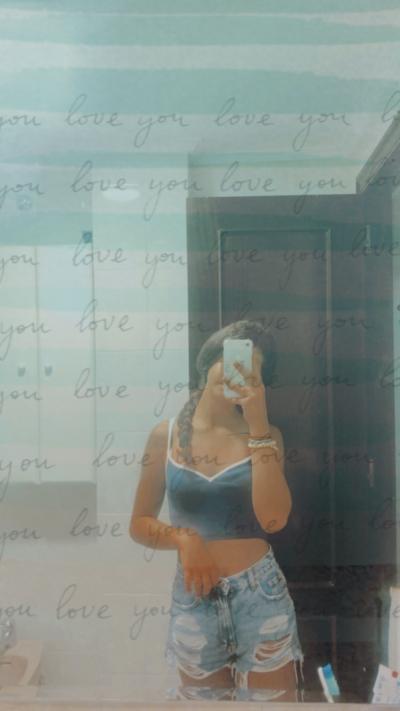 you love you love you l
you love you love you lo
you love you love you love
you love you love you
you love you love you lo
you love you love you lo
you love you love you lo
you love you love you lo